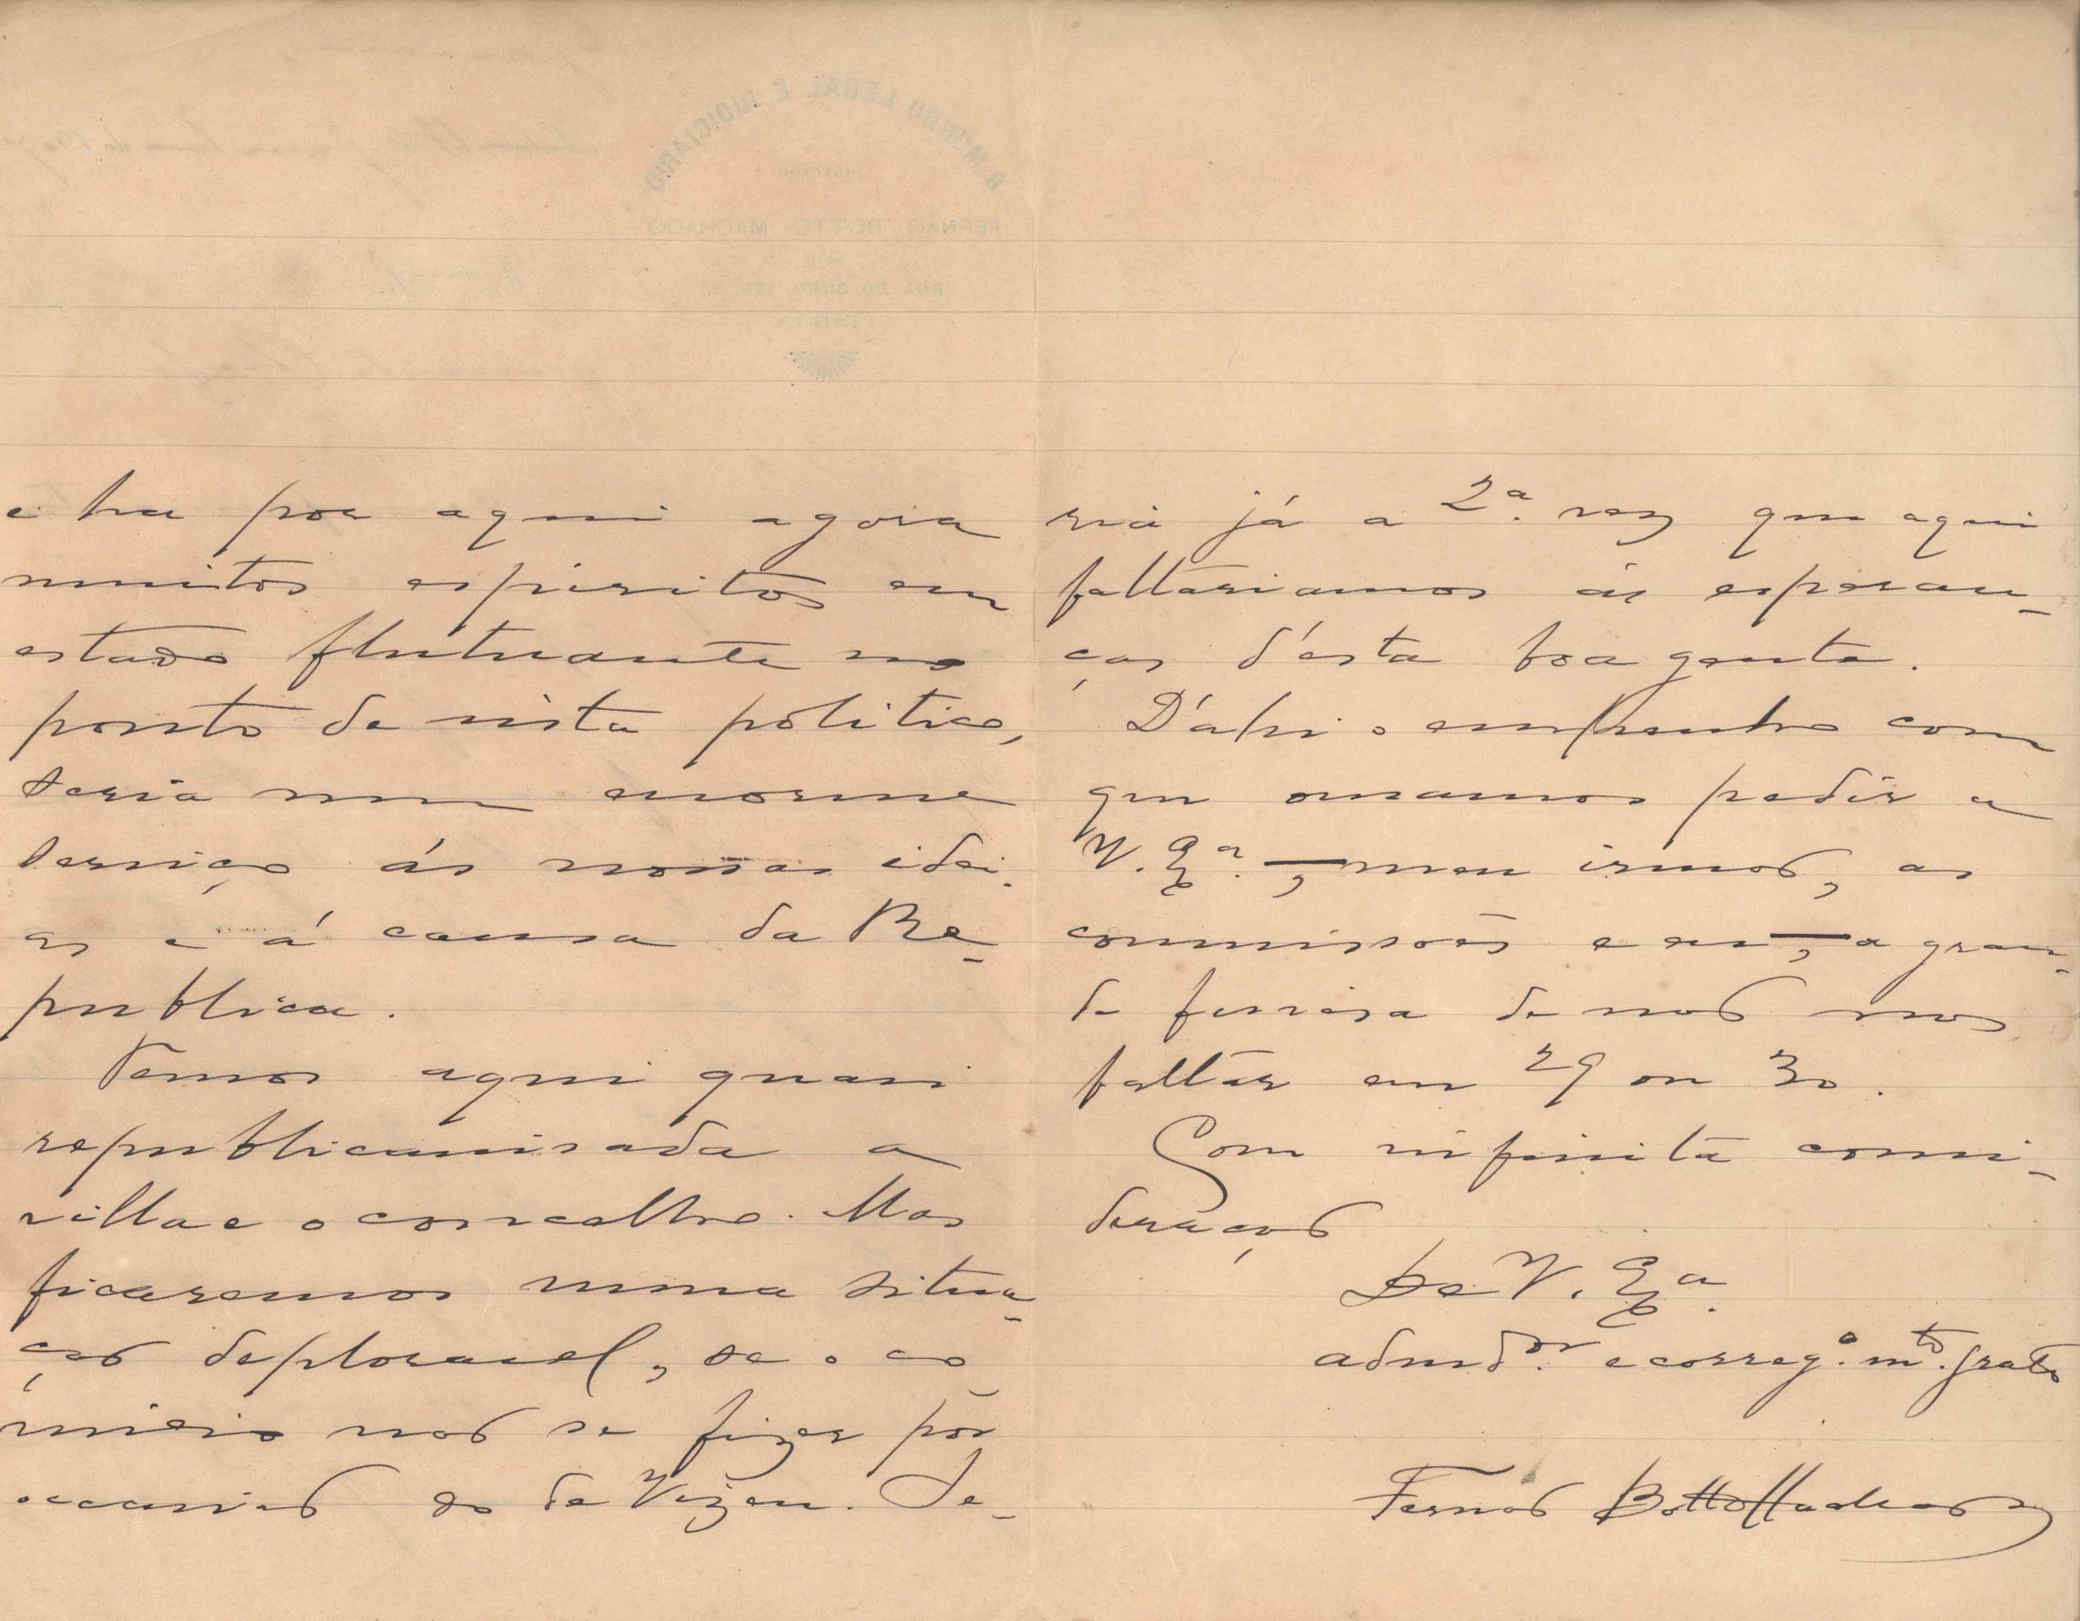 e ha por aqui agora
muitos espiritos em
estado flutuante no
ponto de vista politico,
seria um enorme
serviço ás nossas idei-
as e á causa da Re-
publica.
Temos aqui quasi
republicanisada a
villa e o concelho. Mas
ficaremos numa situa-
ção deploravel, se o co-
micio não se fizer por
occasião do de Vizeu. Se-
ria já a 2ª. vez que aqui
faltariamos ás esperan-
ças d'esta boa gente.
D'ahi o empenho com
que ousamos pedir a
V. Exª. —, meu irmão, as
commissões e eu —, a gran-
de fineza de não nos
faltar em 29 ou 30.
Com infinita consi-
deração
De V. Exª.
admdor. e correg.º mto. grato
Fernão Botto Machado